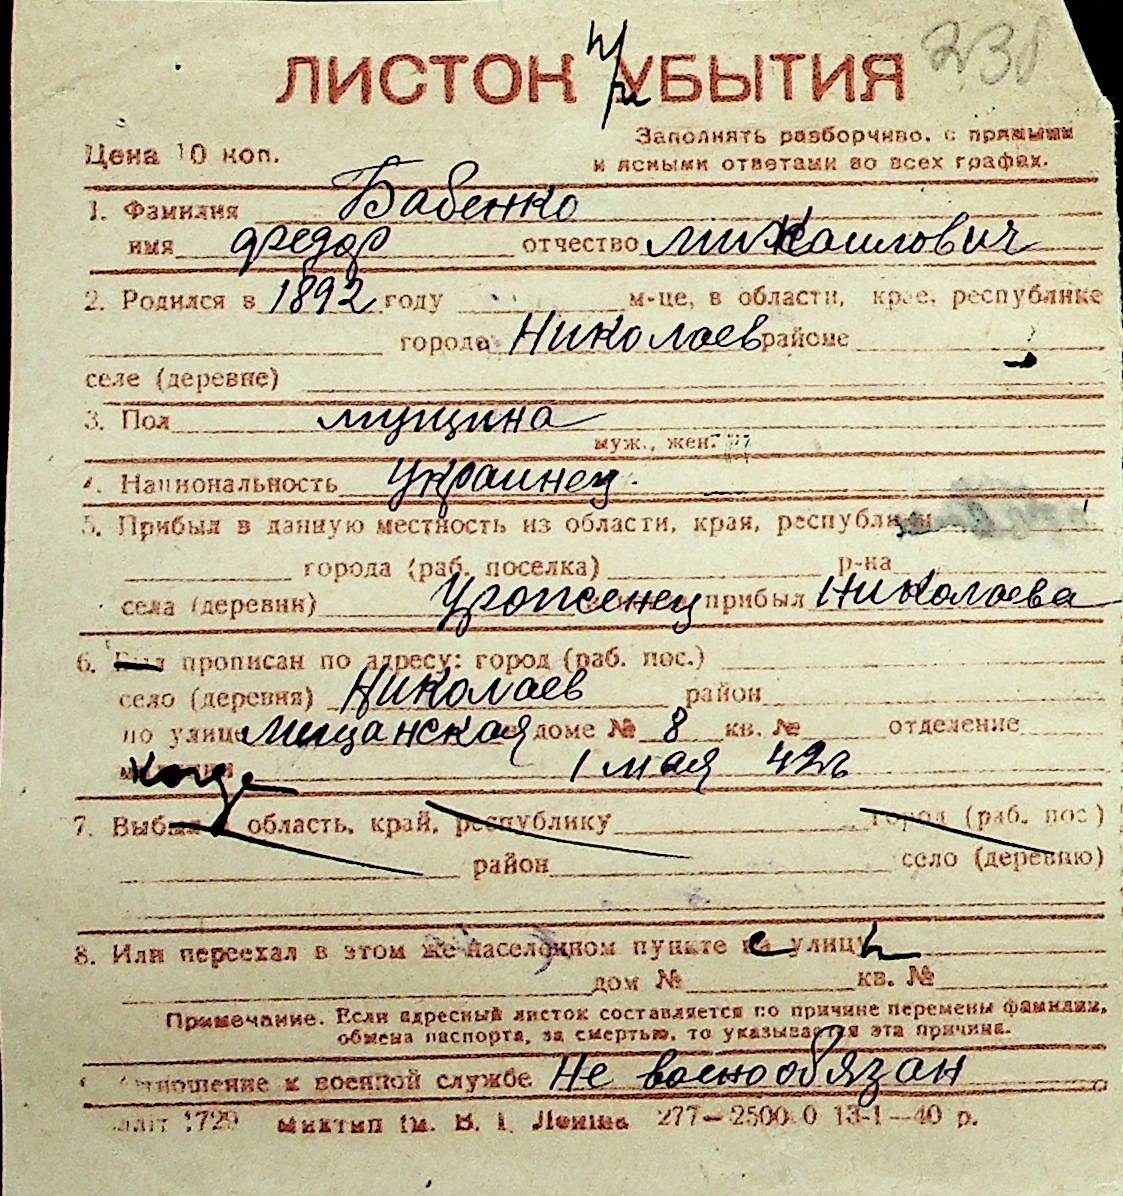 238
ЛИСТОК УБЫТИЯ
при
Цена 10 коп.
Заполнять разборчиво, с прямыми
и ясными ответами во всех графах.
1. Фамилия Бабенко
имя Федор отчество Михайлович
2. Родился в 1892 году м-це, в области, крае, республике
города Николаев районе
селе (деревне)
3. Пол мущина
муж., жен.
4. Национальность Украинец.
5. Прибыл в данную местность из области, края, республики
города (раб. поселка) р-на
села (деревни) Уроженец прибыл Николаева
6. Был прописан по адресу: город (раб. пос.)
село (деревня) Николаев район
по улице Мищанская доме № 8 кв. № отделение
Когда 1 мая 42г
7. Выбыл в область, край, республику город (раб. пос.)
район село (деревню)
8. Или переехал в этом же населенном пункте с улицы
дом № кв. №
Примечание. Если адресный листок составляется по причине перемены фамилии,
обмена паспорта, за смертью, то указывается эта причина.
Отношение к военной службе Не военообязан
1729 Миктип ім. В. І. Леніна 277—2500.0 13-1—40 р.